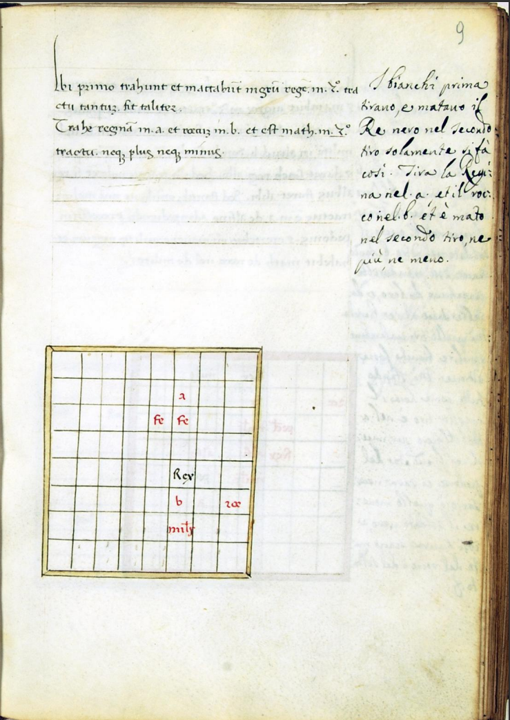 9
Albi primo trahunt et mactabūt nigrū regē. in. 2°. tra
ctu tantuȝ. fit taliter
Trahe reginā in. a. et rocuȝ in. b. et est math. in. 2°
tractu. neqȝ plus neqȝ minus.
I bianchi prima
tirano, e matano il
Re nero nel secondo
tiro solamente si fà
così. Tira la Regi
na nel. a. et il roc:
co nel. b. et è mato
nel secondo tiro, ne
più ne meno.
a
fe fe
Rex
b